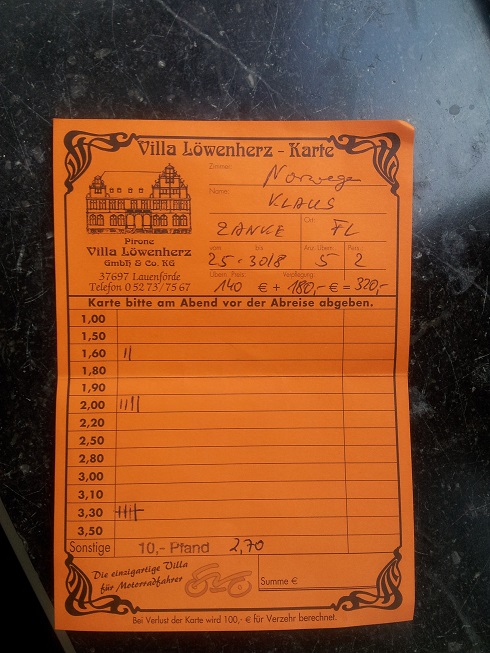 Villa Löwenherz - Karte
Zimmer: Norwegen
Name: KLAUS
ZANKE Ort: FL
Pirone
Villa Löwenherz
GmbH & Co. KG
37697 Lauenförde
Telefon 0 52 73/75 67
vom bis Anz. Übern. Pers.:
25 - 30/8 5 2
Übern. Preis: Verpflegung:
140 € + 180,- € = 320,-
Karte bitte am Abend vor der Abreise abgeben.
1,00
1,50
1,60 ||
1,80
1,90
2,00 ||||
2,20
2,50
2,80
3,00
3,10
3,30
3,50
Sonstige 10,- Pfand 2,70
Die einzigartige Villa
für Motorradfahrer
Summe €
Bei Verlust der Karte wird 100,- € für Verzehr berechnet.